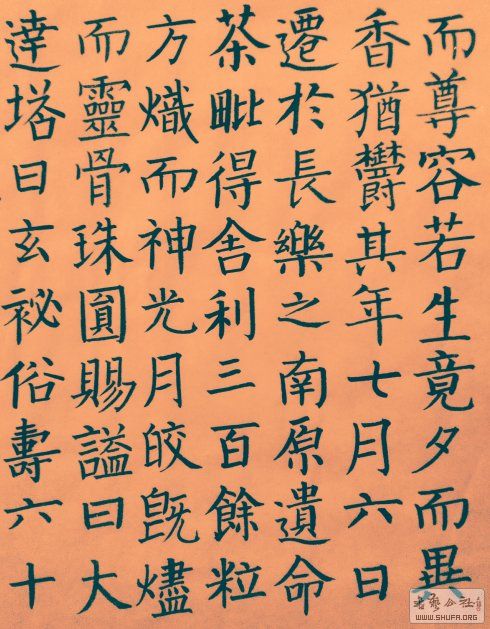 而尊容若生竟夕而異
香猶鬱其年七月六日
遷於長樂之南原遺命
茶毗得舍利三百餘粒
方熾而神光月皎既燼
而靈骨珠圓賜謚曰大
達塔曰玄祕俗壽六十
WWW.SHUFA.ORG